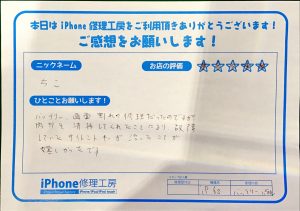 本日は iPhone 修理工房をご利用頂きありがとうございます!
ご感想をお願いします!
ニックネーム
お店の評価
ちこ
ひとことお願いします!
バッテリー、画面割れの修理だったのですが
内部を清掃してくれたことにより、故障
していたサイレントボタンが治ったことが
嬉しかったです
iPhone修理工房